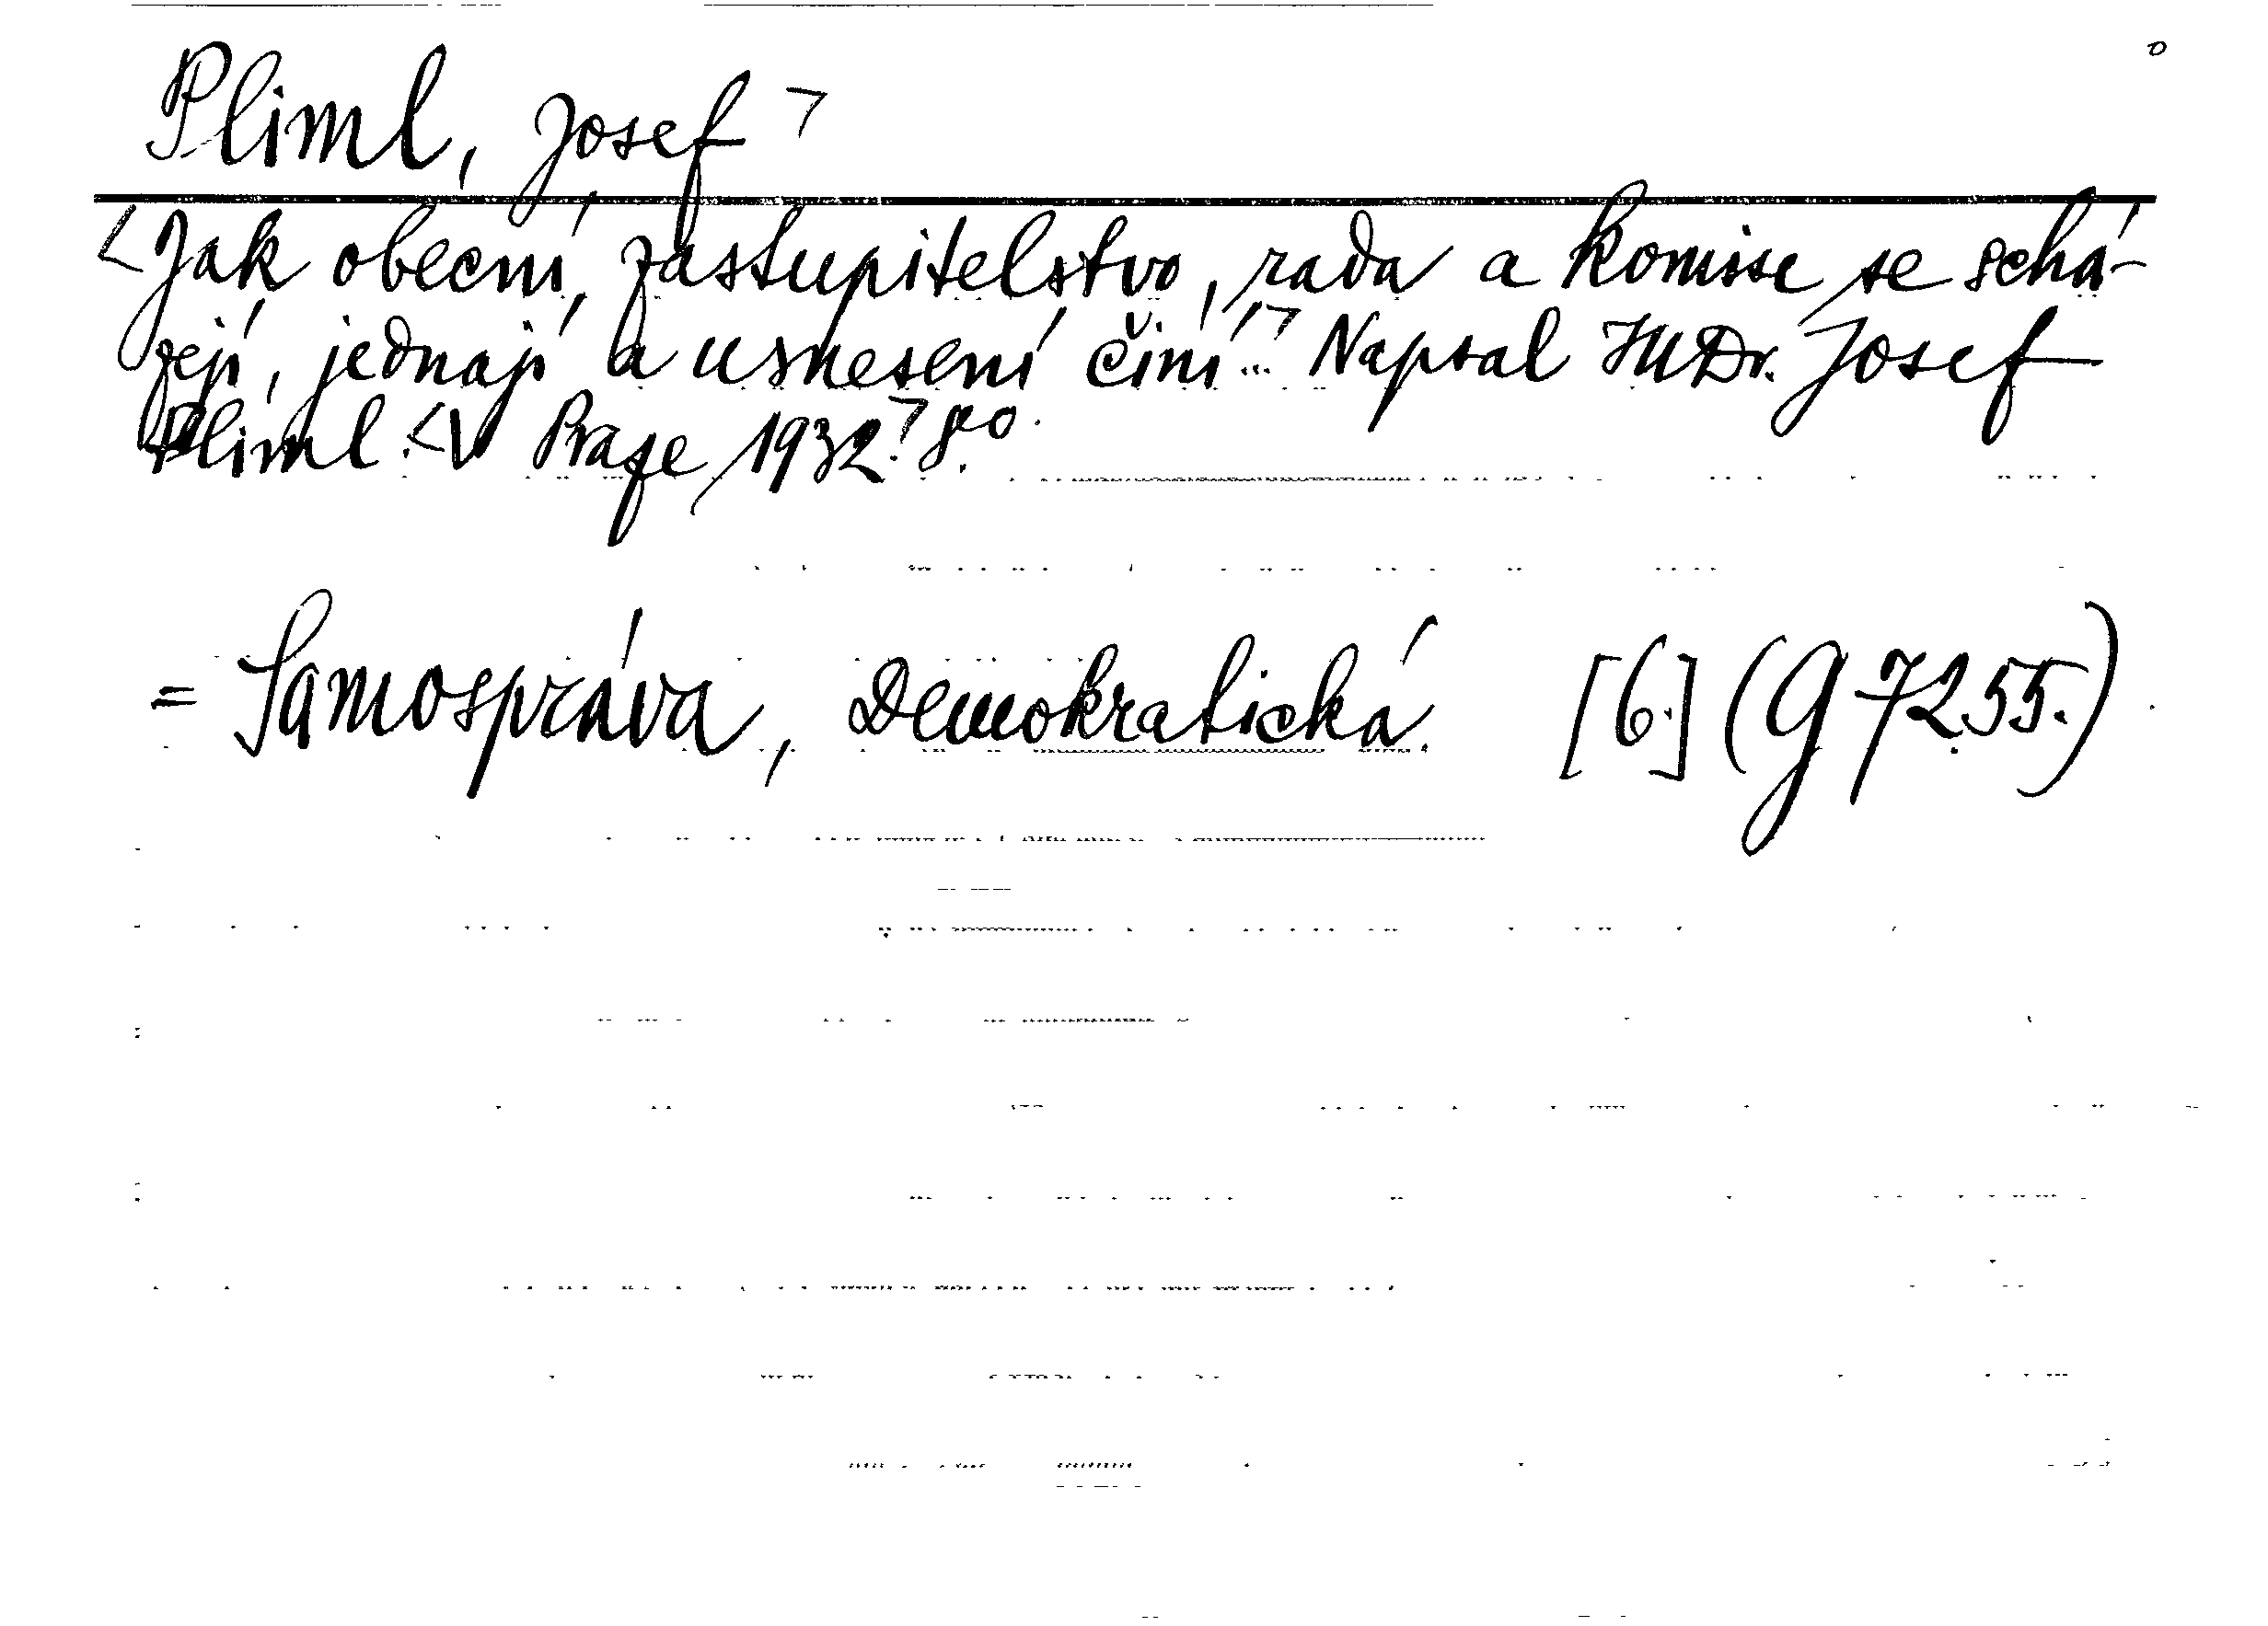 Pliml, Josef ㄱ
<Jak obecní zastupitelstvo, rada a komisse se schá-
zejí, jednají a usnesení činí...ㄱ Napsal JUDr. Josef
Pliml. <V Praze, 1932.ㄱ 8.o
= Samospráva, Demokratická. [6.] (G 7255.)